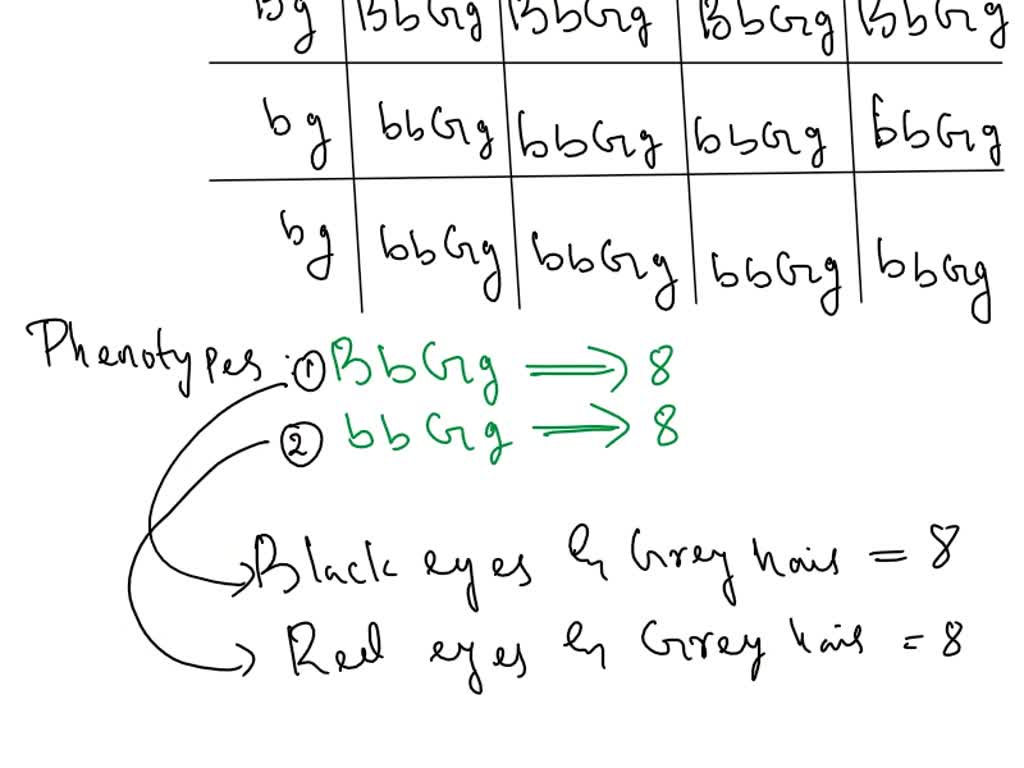 Bg BbGg BbGg BbGg BbGg
bg bbGg bbGg bbGg bbGg
bg bbGg bbGg bbGg bbGg
Phenotypes : ① BbGg ⟹ 8
② bbGg ⟹ 8
Black eyes & Grey hair = 8
Red eyes & Grey hair = 8